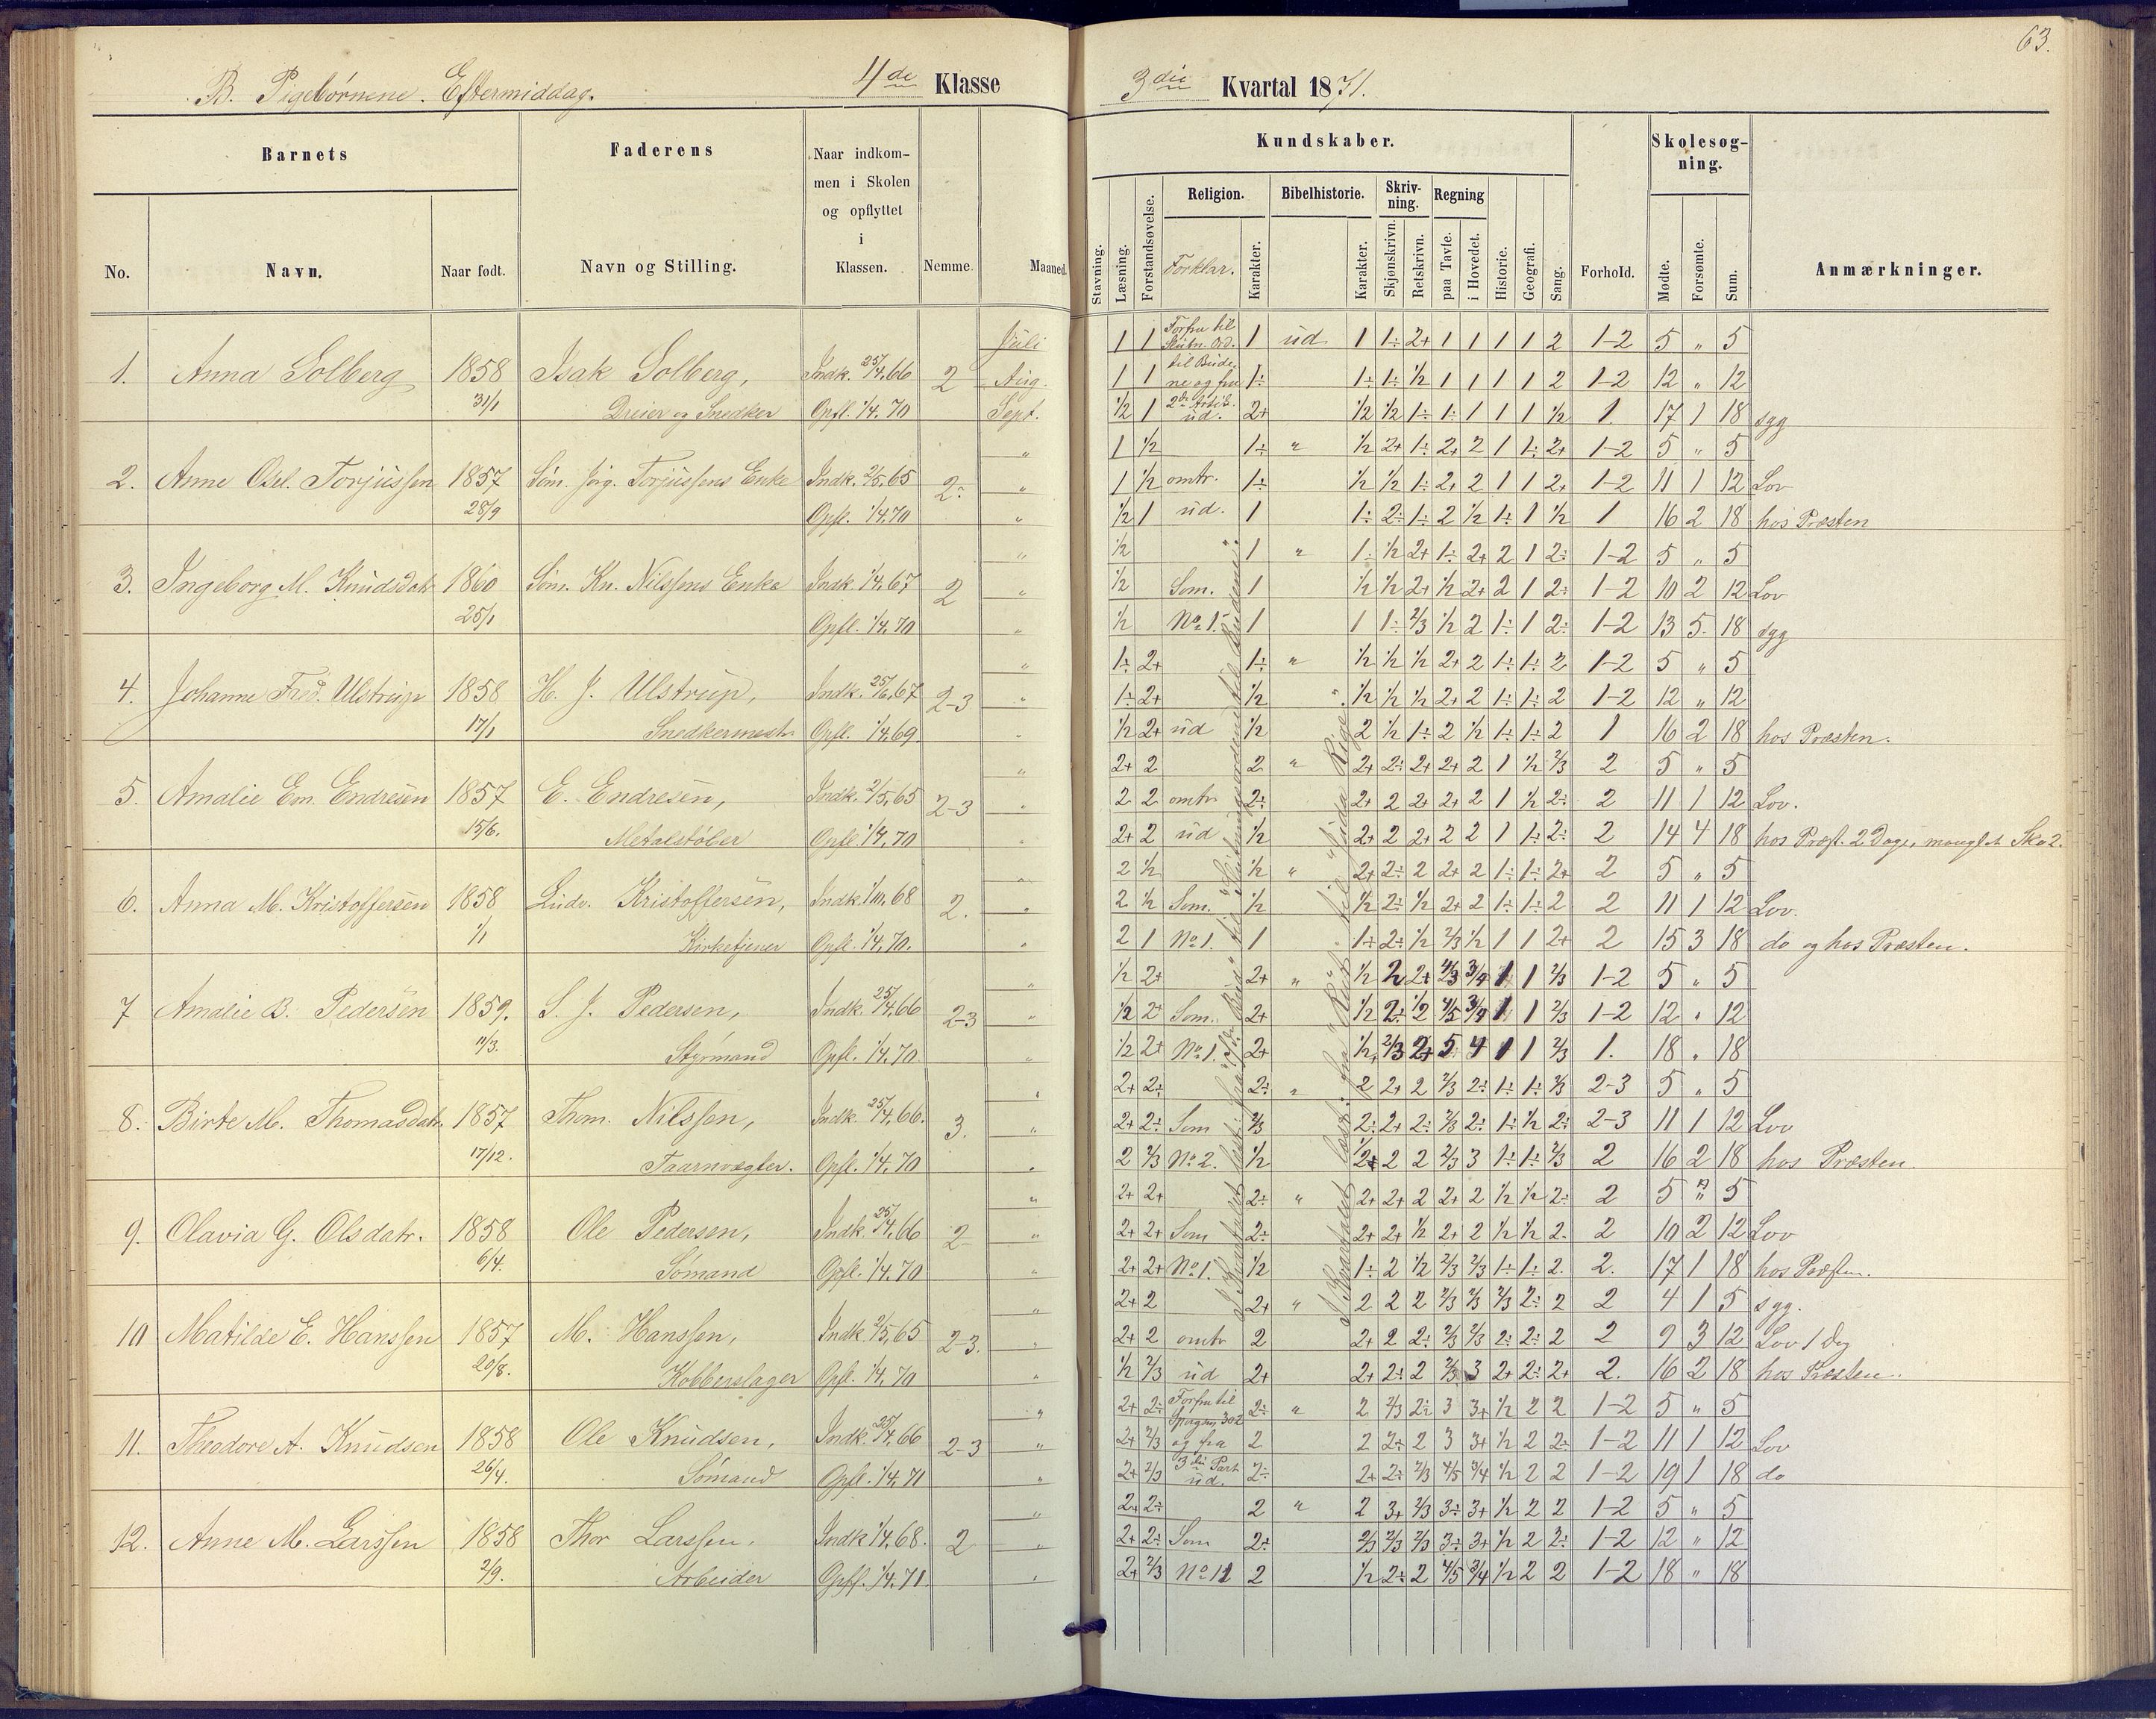 63.
B. Pigebørnene. Eftermiddag. 4de Klasse
3die Kvartal 1871.
Barnets
Faderens
Naar indkom-
men i Skolen
og opflyttet
i
Klassen.
Kundskaber.
Skolesøg-
ning.
Religion. Bibelhistorie. Skriv-
ning. Regning
No. Navn. Naar født. Navn og Stilling. Nemme. Maaned.
Stavning. Læsning. Forstandsøvelse. Forklar. Karakter. Karakter. Skjønskrivn. Retskrivn. paa Tavle. i Hovedet. Historie. Geografi. Sang. Forhold. Mødte. Forsømte. Sum. Anmærkninger.
Juli 1 1 1 ud 1 1÷ 2+ 1 1 1 1 2 1-2 5 " 5
1. Anna Solberg 1858 Isak Solberg, Indk. 25/4.66 2 Aug. 1 1 1÷ 1÷ 1÷ 1/2 1 1 1 1 2 1-2 12 " 12
31/1 Dreier og Snedker Opfl. 1/4.70 Sept. 1/2 1 ud. 2+ 1/2 1/2 1÷ 1÷ 1 1 1 1/2 1. 17 1 18 syg
" 1 1/2 1÷ " 1/2 2+ 1÷ 2+ 2 1 1÷ 2+ 1-2 5 " 5
2. Anne Osel. Torjussen 1857 Søm. Jørg. Torjussens Enke Indk. 2/5.65 2÷ " 1 1/2 omtr. 1÷ 1/2 1/2 1÷ 2+ 2 1 1 2+ 1-2 11 1 12 Lov
28/9 Opfl. 1/4.70 " 1/2 1 ud. 1 1÷ 2÷ 1÷ 2 1/2 1÷ 1 1/2 1 16 2 18 hos Præsten
" 1/2 1 " 1÷ 1/2 2+ 1÷ 2+ 2 1 2÷ 1-2 5 " 5
3. Ingeborg M. Knudsdatr 1860 Søm. Kn. Nilssens Enke Indk 1/4.67 2 " 1/2 Som. 1 1/2 1/2 2+ 1/2 2+ 2 1 2÷ 1-2 10 2 12 Lov
25/1 Opfl. 1/4.70 " 1/2 No 1. 1 1 1÷ 2/3 1/2 2 1÷ 1 2÷ 1-2 13 5. 18 syg
" 1÷ 2+ 1÷ " 1/2 1/2 1/2 2+ 2 1÷ 1÷ 2 1-2 5 " 5
4. Johanne Fred. Ulstrup 1858 H. J. Ulstrup, Indk. 25/6.67 2-3 " 1÷ 2+ 1/2 1/2 1/2 1/2 2+ 2 1÷ 1÷ 2 1-2 12 " 12
17/1 Snedkermestr Opfl. 1/4.69. " 1/2 2+ ud 1/2 2 1/2 1÷ 2 1/2 1÷ 1÷ 2 1 16 2 18 hos Præsten.
" 2+ 2 2 " 2+ 2÷ 2+ 2+ 2 1 1/2 2/3 2 5 " 5
5. Amalie Em. Endresen 1857 E. Endresen, Indk. 2/5.65 2-3 " 2 2 omtr 2÷ 2+ 2 2+ 2+ 2 1 1/2 2÷ 2 11 1 12 Lov.
15/6. Metalstøber Opfl. 1/4.70 " 2+ 2 ud 1/2 2+ 2 2+ 2 2 1 1÷ 2÷ 2 14 4 18 hos Præst. 2 Dage, manglet Sko 2.
" 2 1/2 1/2 " 2+ 2÷ 2 2+ 2 1÷ 1÷ 2+ 2 5 " 5
6. Anna M. Kristoffersen 1858 Ludv. Kristoffersen, Indk 1/10.68 2. " 2 1/2 Som. 1/2 1/2 2÷ 1/2 2+ 2 1÷ 1÷ 2 2 11 1 12 Lov.
1/1 Kirketjener Opfl. 1/4.70. " 2 1 No 1. 1 1÷ 2÷ 1/2 2/3 1/2 1 1 2+ 2 15 3 18 do og hos Præsten.
" 1/2 2+ 2+ " 1/2 2 2+ 4/3 3/4 1 1 2/3 1-2 5 " 5
7 Amalie B. Pedersen 1859. S. J. Pedersen, Indk. 25/4.66 2-3 " 1/2 2+ Som. 2+ 1/2 2÷ 1/2 4/5 3/4 1 1 2/3 1-2 12 " 12
11/3. Styrmand Opfl. 1/4.70. " 1/2 2+ No 1. 2+ 1/2 2/3 2+ 5 4 1 1 2/3 1. 18 " 18
" 2+ 2÷ 2÷ " 2 2+ 2 2/3 2÷ 1÷ 1÷ 2/3 2-3 5 " 5
8. Birte M. Thomasdatr. 1857 Thom. Nilssen, Indk. 25/4.66. 3. " 2+ 2÷ Som 2/3 2÷ 2+ 2÷ 2/3 2÷ 1÷ 1/2 2÷ 2-3 11 1 12 Lov
17/12. Taarnvægter. Opfl. 1/4.70 " 2 2/3 No 2. 1/2 2 2 2/3 3 1÷ 1÷ 2/3 2 16 2 18 hos Præsten.
" 2+ 2+ 2÷ " 2+ 2+ 2 2+ 2 1/2 1/2 2÷ 2 5 " 5
9. Olavia G. Olsdatr. 1858 Ole Pedersen, Indk. 25/4.66 2 " 2+ 2+ Som 2÷ 2+ 2+ 1/2 2+ 2 1/2 1/2 2. 2 10 2 12 Lov
6/4. Sømand Opfl. 1/4.70 " 2+ 2+ No 1. 1/2 1÷ 2 1/2 2/3 2/3 1÷ 1÷ 2. 2. 17 1 18 hos Præsten.
" 2+ 2 2+ " 2 2 2 2/3 2/3 2/3 2÷ 2 2 4 1 5 syg.
10 Matilde E. Hanssen 1857 M. Hanssen, Indk. 2/5.65 2-3. " 2+ 2 omtr 2 2+ 2 2÷ 2/3 2/3 2÷ 2÷ 2 2 9 3 12 Lov 1 Dag
20/8. Kobberslager Opfl. 1/4.70 " 1/2 2/3 ud 2+ 2+ 2÷ 2 2/3 3 2+ 2÷ 2+ 2. 16 2 18 hos Præsten.
" 2+ 2÷ Forfra til 2÷ " 2 2/3 2÷ 3 3+ 1/2 2 2 1-2 5 " 5
11. Theodore A. Knudsen 1858 Ole Knudsen, Indk. 25/4.66 2-3 " 2+ 2/3 og fra 2 2 2÷ 2 3 3+ 1/2 2 2÷ 1-2 11 1 12 Lov
26/4. Sømand Opfl. 1/4.71 " 2+ 2/3 3die Part ud. 2÷ 2+ 2÷ 2/3 4/5 3/4 1/2 2 2 1-2 19 1 18 do
" 2+ 2÷ 2 " 2 3+ 2/3 3÷ 3+ 1/2 2 2 1-2 5 " 5
12. Anne M. Larssen 1858 Thor Larssen. Indk 1/4.68. 2 " 2+ 2÷ Som 2÷ 2/3 2/3 2/3 3÷ 3+ 1/2 2 2÷ 1-2 12 " 12
2/9. Arbeider Opfl. 1/4.71. " 2+ 2/3 No 11 2 1/2 2÷ 2 4/5 3/4 1/2 2 2 1-2 18 " 18